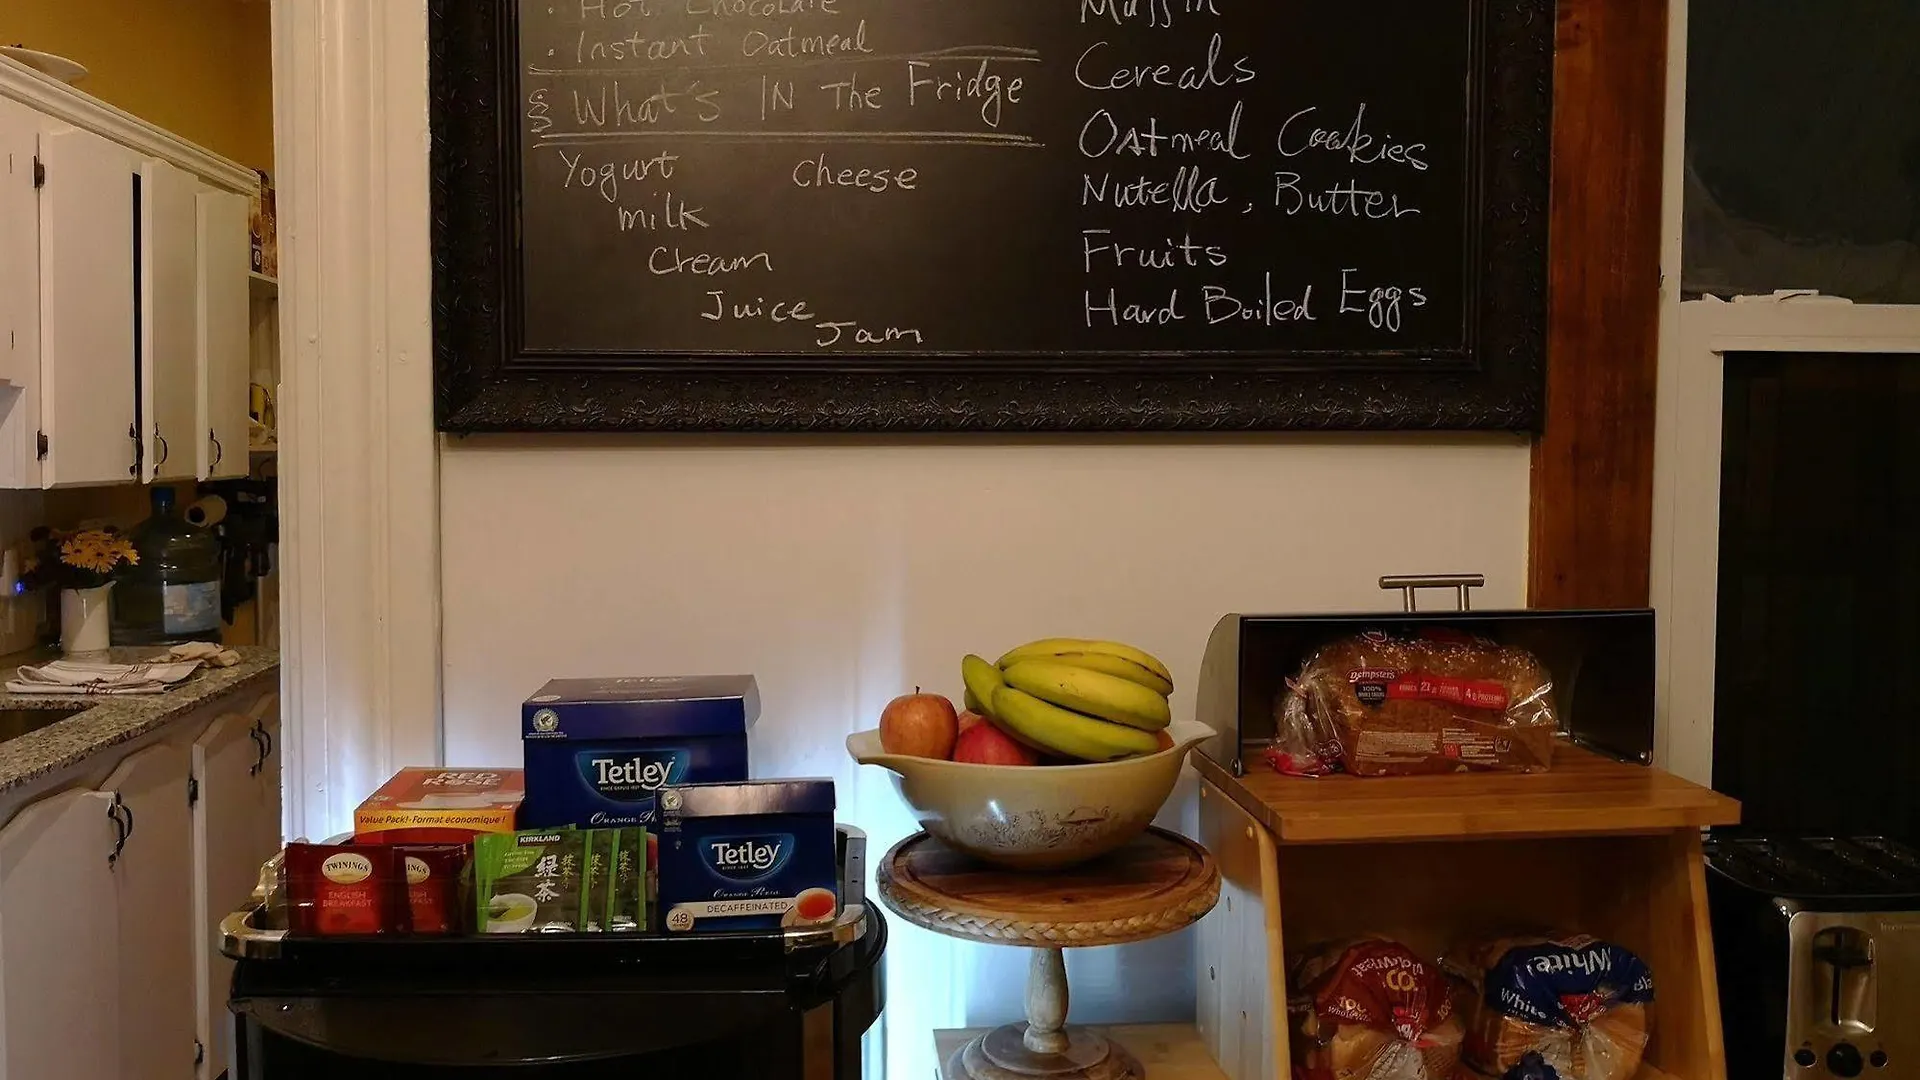 · Hot Chocolate
· Instant Oatmeal
§ What's IN The Fridge
Yogurt Cheese
milk
Cream
Juice
Jam
Muffin
Cereals
Oatmeal Cookies
Nutella, Butter
Fruits
Hard Boiled Eggs
Dempster's
100%
RED ROSE
Value Pack! · Format économique !
Tetley
ORANGE
TWININGS
ENGLISH BREAKFAST
KIRKLAND
緑茶
抹茶
Tetley
DECAFFEINATED
48
White